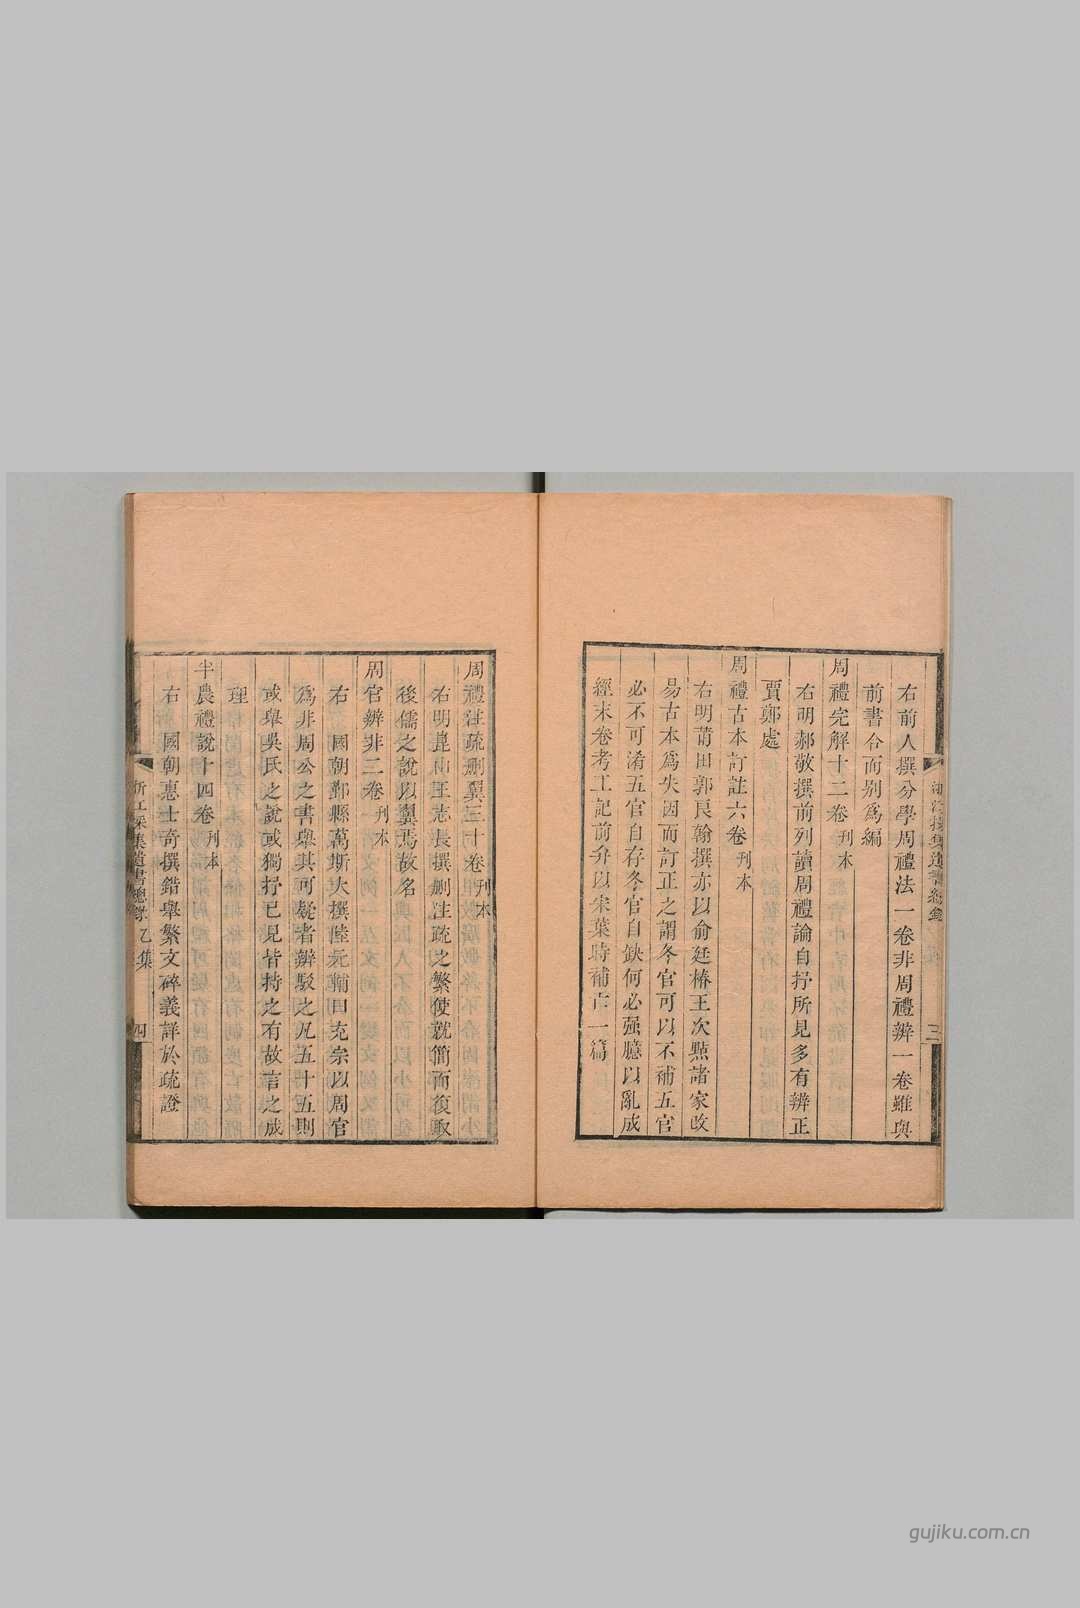 右前人撰分學周禮法一卷非周禮辨一卷雖與
前書合而別爲編
周禮完解十二卷刊本
右明郝敬撰前列讀周禮論自抒所見多有辨正
賈鄭處
周禮古本訂註六卷刊本
右明莆田郭良翰撰亦以俞廷椿王次點諸家改
易古本爲失因而訂正之謂冬官可以不補五官
必不可淆五官自存冬官自缺何必强臆以亂成
經末卷考工記前弁以宋葉時補亡一篇
三
周禮注疏刪翼三十卷刊本
右明崑山王志長撰刪注疏之繁使就簡而復取
後儒之說以翼焉故名
周官辨非二卷刊本
右國朝鄞縣萬斯大撰陸元輔曰充宗以周官
爲非周公之書舉其可疑者辨駁之凡五十五則
或舉吳氏之說或獨抒已見皆持之有故言之成
理
半農禮說十四卷刊本
右國朝惠士奇撰錯舉繁文碎義詳於疏證
浙江採集遺書總錄 乙集
四
gujiku.com.cn